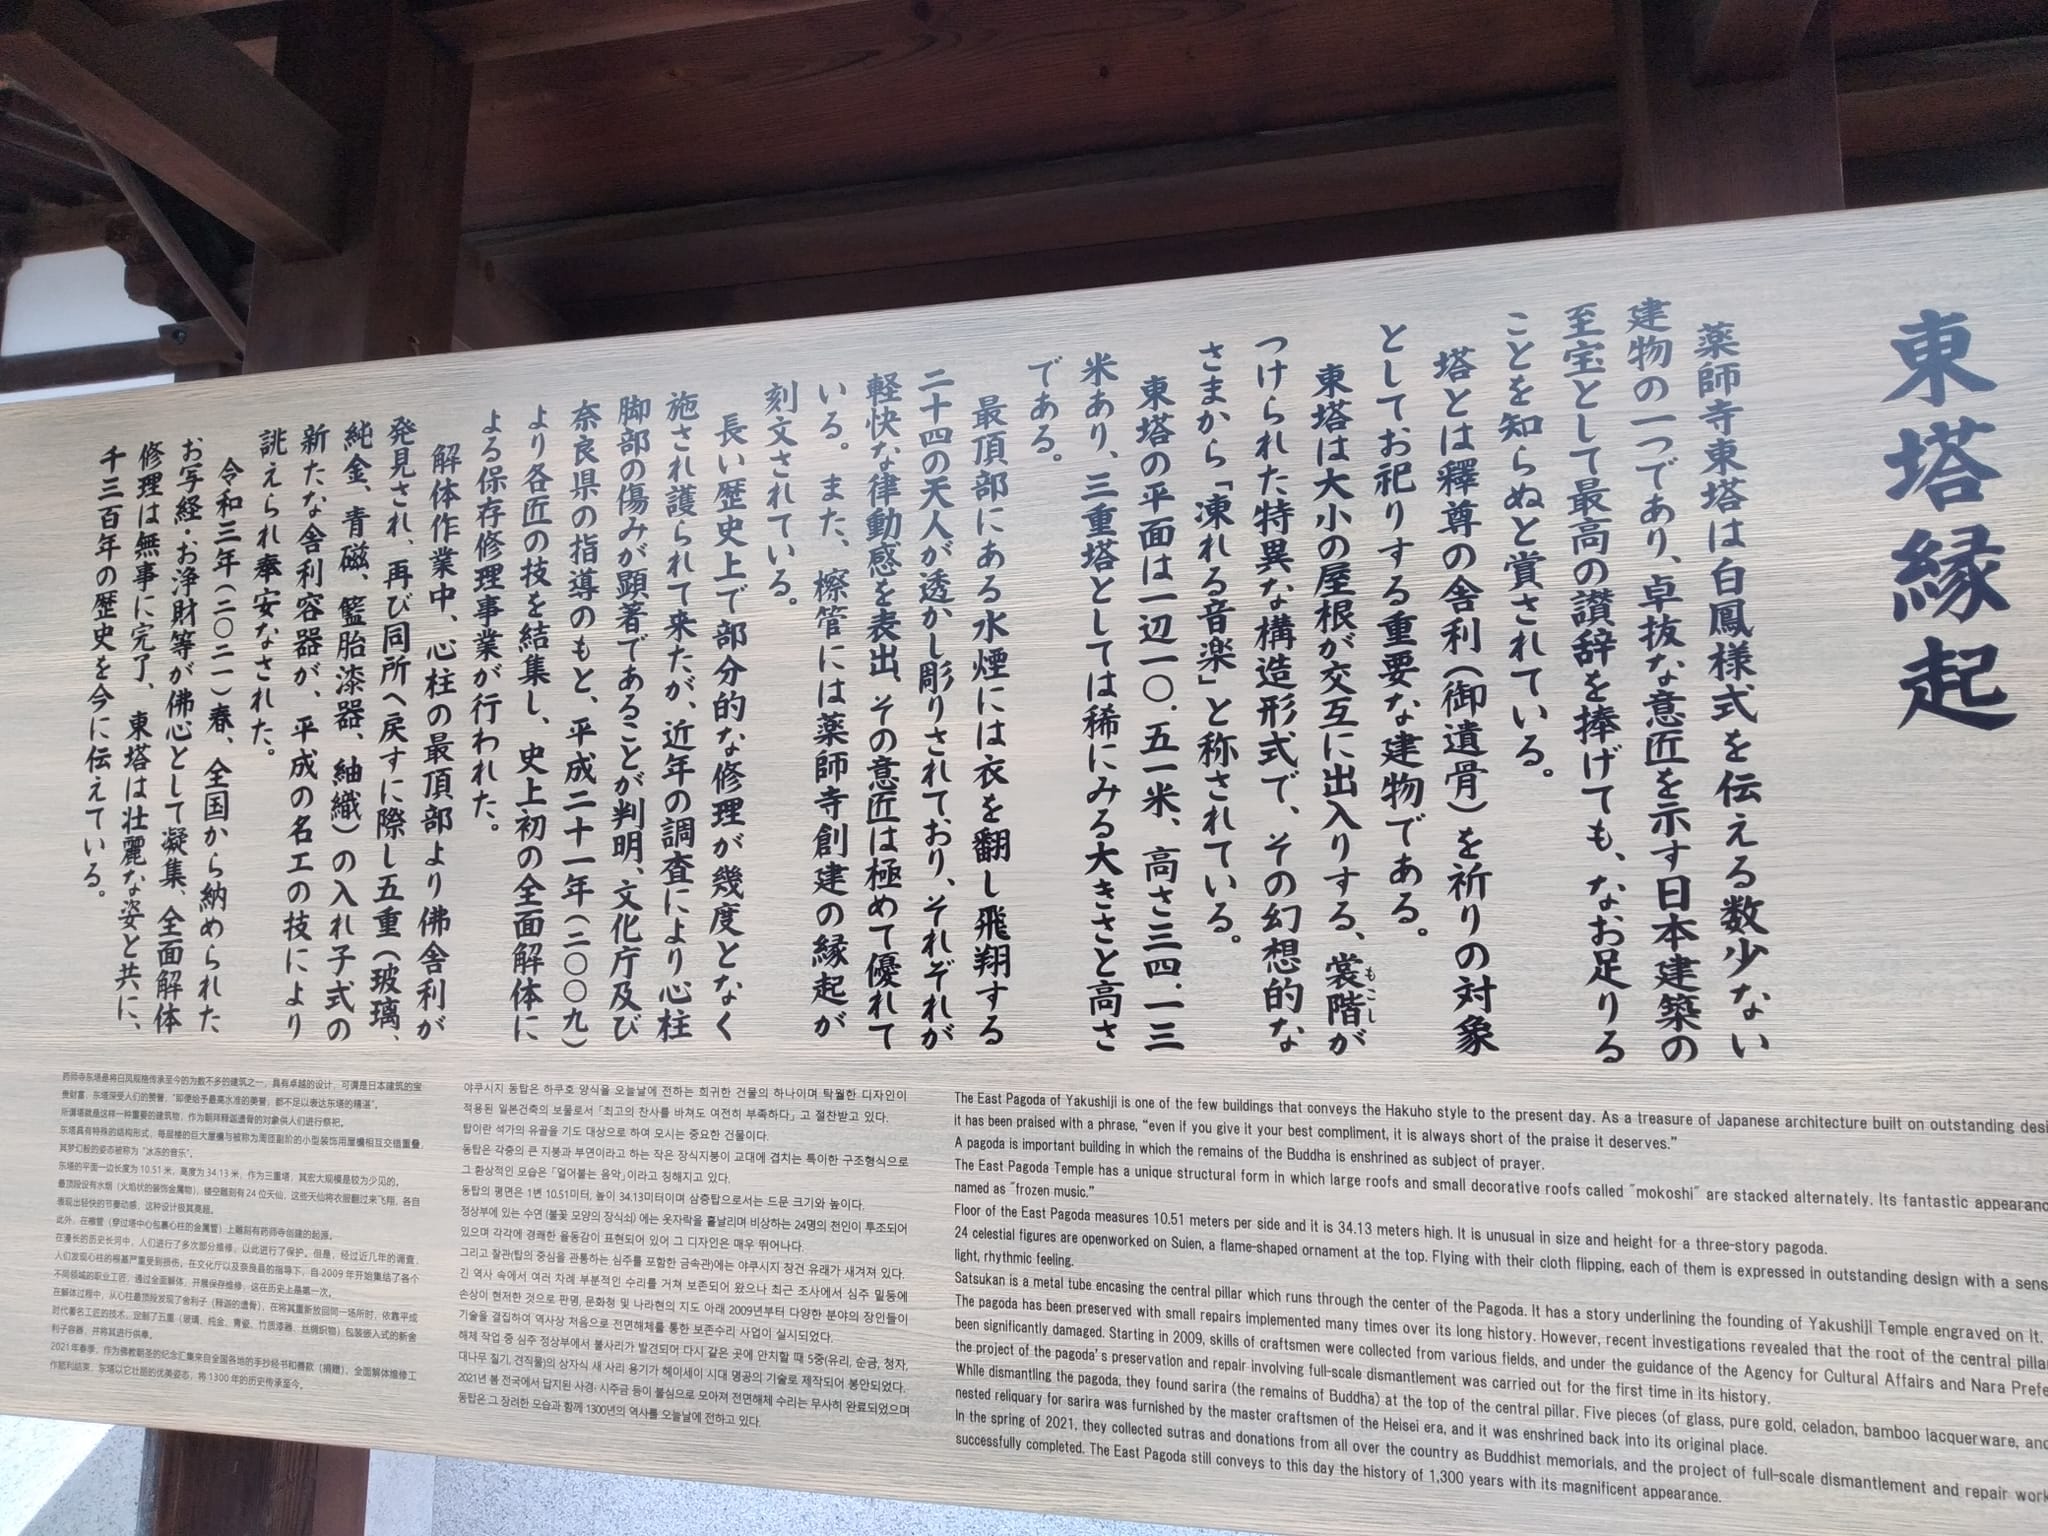 東塔縁起
薬師寺東塔は白鳳様式を伝える数少ない
建物の一つであり、卓抜な意匠を示す日本建築の
至宝として最高の讃辞を捧げても、なお足りる
ことを知らぬと賞されている。
塔とは釋尊の舎利(御遺骨)を祈りの対象
としてお祀りする重要な建物である。
東塔は大小の屋根が交互に出入りする、裳階が
もこし
つけられた特異な構造形式で、その幻想的な
さまから「凍れる音楽」と称されている。
東塔の平面は一辺一〇.五一米、高さ三四.一三
米あり、三重塔としては稀にみる大きさと高さ
である。
最頂部にある水煙には衣を翻し飛翔する
二十四の天人が透かし彫りされており、それぞれが
軽快な律動感を表出、その意匠は極めて優れて
いる。また、檫管には薬師寺創建の縁起が
刻文されている。
長い歴史上で部分的な修理が幾度となく
施され護られて来たが、近年の調査により心柱
脚部の傷みが顕著であることが判明、文化庁及び
奈良県の指導のもと、平成二十一年(二〇〇九)
より各匠の技を結集し、史上初の全面解体に
よる保存修理事業が行われた。
解体作業中、心柱の最頂部より佛舎利が
発見され、再び同所へ戻すに際し五重(玻璃、
純金、青磁、籃胎漆器、紬織)の入れ子式の
新たな舎利容器が、平成の名工の技により
誂えられ奉安なされた。
令和三年(二〇二一)春、全国から納められた
お写経・お浄財等が佛心として凝集、全面解体
修理は無事に完了、東塔は壮麗な姿と共に、
千三百年の歴史を今に伝えている。
药师寺东塔是将白凤规格传承至今的为数不多的建筑之一，具有卓越的设计，可谓是日本建筑的宝
贵财富，东塔深受人们的赞誉，"即便给予最高水准的美誉，都不足以表达东塔的精湛"。
所谓塔就是这样一种重要的建筑物，作为朝拜释迦遗骨的对象供人们进行祭祀。
东塔具有特殊的结构形式，每层楼的巨大屋檐与被称为周匝副阶的小型装饰用屋檐相互交错重叠，
其梦幻般的姿态被称为"冰冻的音乐"。
东塔的平面一边长度为 10.51 米，高度为 34.13 米，作为三重塔，其宏大规模是较为少见的。
最顶段设有水烟（火焰状的装饰金属物），镂空雕刻有 24 位天仙，这些天仙将衣服翻过来飞翔，各自
表现出轻快的节奏动感，这种设计极其亮丽。
此外，在檫管（穿过塔中心包裹心柱的金属管）上雕刻有药师寺创建的起源。
在漫长的历史长河中，人们进行了多次部分维修，以此进行了保护。但是，经过近几年的调查，
人们发现心柱的根基严重受到损伤，在文化厅以及奈良县的指导下，自 2009 年开始集结了各个
不同领域的职业工匠，通过全面解体，开展保存维修，这在历史上是第一次。
在解体过程中，从心柱最顶段发现了舍利子（释迦的遗骨），在将其重新放回同一场所时，依靠平成
时代著名工匠的技术，定制了五重（玻璃、纯金、青瓷、竹质漆器、丝绸织物）包装嵌入式的新舍
利子容器，并将其进行供奉。
2021 年春季，作为佛教朝圣的纪念汇集来自全国各地的手抄经书和善款（捐赠），全面解体维修工
作顺利结束，东塔以它壮丽的优美姿态，将 1300 年的历史传承至今。
야쿠시지 동탑은 하쿠호 양식을 오늘날에 전하는 희귀한 건물의 하나이며 탁월한 디자인이
적용된 일본건축의 보물로서「최고의 찬사를 바쳐도 여전히 부족하다」고 절찬받고 있다.
탑이란 석가의 유골을 기도 대상으로 하여 모시는 중요한 건물이다.
동탑은 각층의 큰 지붕과 부연이라고 하는 작은 장식지붕이 교대에 겹치는 특이한 구조형식으로
그 환상적인 모습은「얼어붙는 음악」이라고 칭해지고 있다.
동탑의 평면은 1변 10.51미터, 높이 34.13미터이며 삼층탑으로서는 드문 크기와 높이다.
정상부에 있는 수연 (불꽃 모양의 장식쇠) 에는 옷자락을 흩날리며 비상하는 24명의 천인이 투조되어
있으며 각각에 경쾌한 율동감이 표현되어 있어 그 디자인은 매우 뛰어나다.
그리고 찰관(탑의 중심을 관통하는 심주를 포함한 금속관)에는 야쿠시지 창건 유래가 새겨져 있다.
긴 역사 속에서 여러 차례 부분적인 수리를 거쳐 보존되어 왔으나 최근 조사에서 심주 밑동에
손상이 현저한 것으로 판명, 문화청 및 나라현의 지도 아래 2009년부터 다양한 분야의 장인들이
기술을 결집하여 역사상 처음으로 전면해체를 통한 보존수리 사업이 실시되었다.
해체 작업 중 심주 정상부에서 불사리가 발견되어 다시 같은 곳에 안치할 때 5중(유리, 순금, 청자,
대나무 칠기, 견직물)의 상자식 새 사리 용기가 헤이세이 시대 명공의 기술로 제작되어 봉안되었다.
2021년 봄 전국에서 답지된 사경· 시주금 등이 불심으로 모아져 전면해체 수리는 무사히 완료되었으며
동탑은 그 장려한 모습과 함께 1300년의 역사를 오늘날에 전하고 있다.
The East Pagoda of Yakushiji is one of the few buildings that conveys the Hakuho style to the present day. As a treasure of Japanese architecture built on outstanding desi
it has been praised with a phrase, "even if you give it your best compliment, it is always short of the praise it deserves."
A pagoda is important building in which the remains of the Buddha is enshrined as subject of prayer.
The East Pagoda Temple has a unique structural form in which large roofs and small decorative roofs called "mokoshi" are stacked alternately. Its fantastic appearanc
named as "frozen music."
Floor of the East Pagoda measures 10.51 meters per side and it is 34.13 meters high. It is unusual in size and height for a three-story pagoda.
24 celestial figures are openworked on Suien, a flame-shaped ornament at the top. Flying with their cloth flipping, each of them is expressed in outstanding design with a sens
light, rhythmic feeling.
Satsukan is a metal tube encasing the central pillar which runs through the center of the Pagoda. It has a story underlining the founding of Yakushiji Temple engraved on it.
The pagoda has been preserved with small repairs implemented many times over its long history. However, recent investigations revealed that the root of the central pilla
been significantly damaged. Starting in 2009, skills of craftsmen were collected from various fields, and under the guidance of the Agency for Cultural Affairs and Nara Prefe
the project of the pagoda's preservation and repair involving full-scale dismantlement was carried out for the first time in its history.
While dismantling the pagoda, they found sarira (the remains of Buddha) at the top of the central pillar. Five pieces (of glass, pure gold, celadon, bamboo lacquerware, and
nested reliquary for sarira was furnished by the master craftsmen of the Heisei era, and it was enshrined back into its original place.
In the spring of 2021, they collected sutras and donations from all over the country as Buddhist memorials, and the project of full-scale dismantlement and repair work
successfully completed. The East Pagoda still conveys to this day the history of 1,300 years with its magnificent appearance.